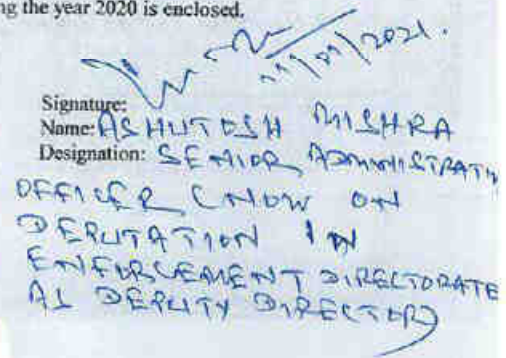 ng the year 2020 is enclosed.
/2021.
Signature:
Name: ASHUTOSH MISHRA
Designation: SENIOR ADMINISTRATIV
OFFICER (NOW ON
DEPUTATION IN
ENFORCEMENT DIRECTORATE
AS DEPUTY DIRECTOR)